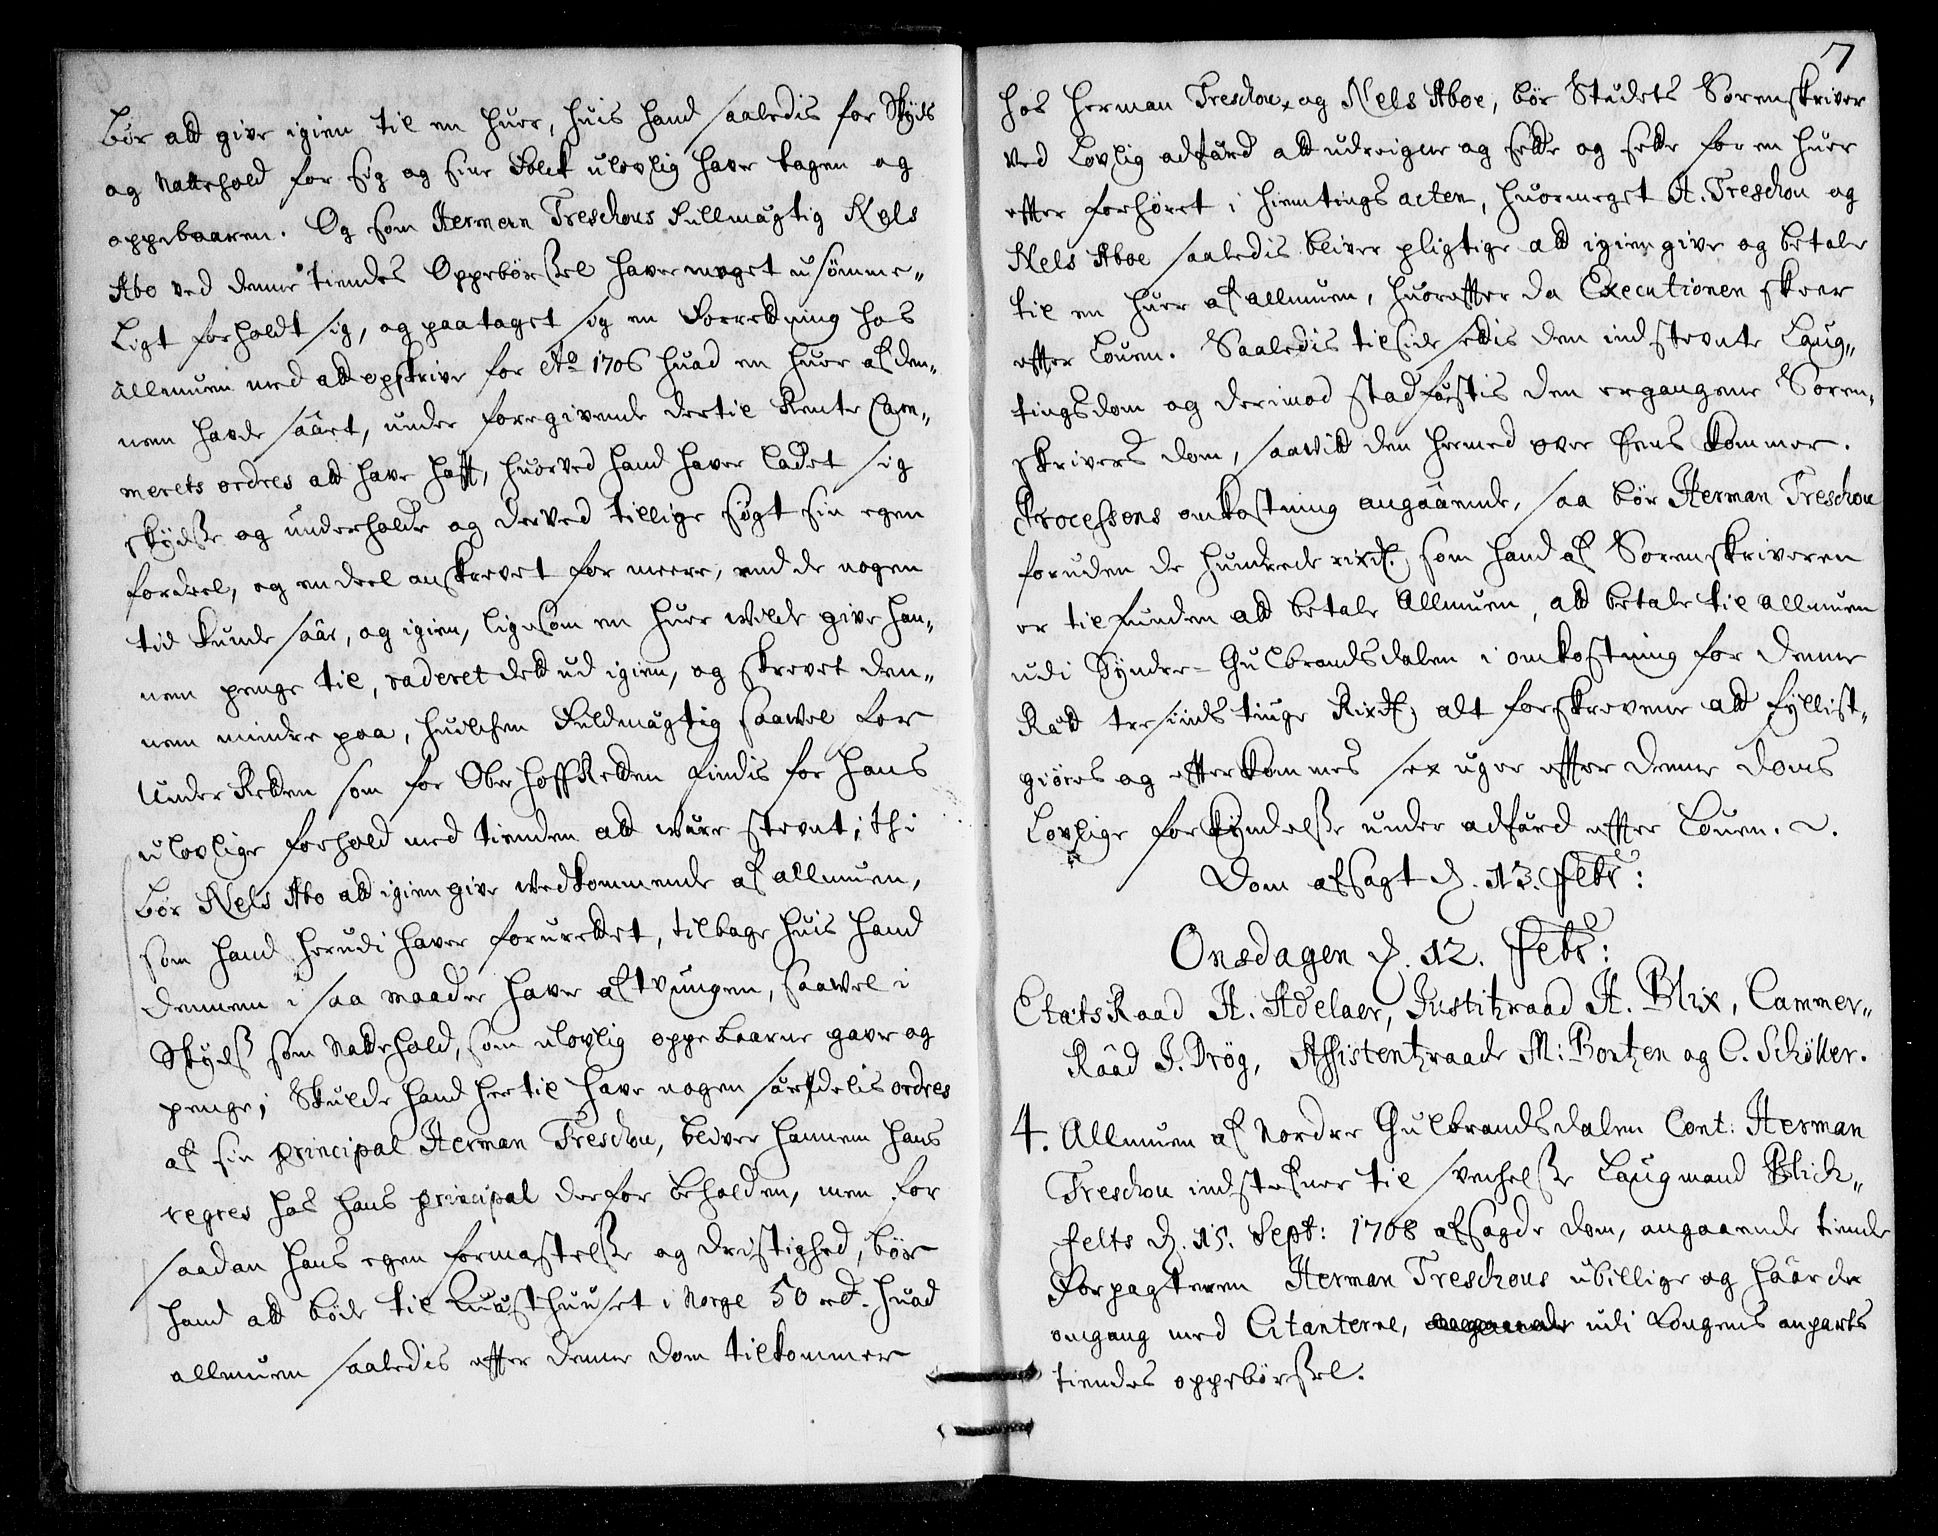 bör att give igien til en huer, huis hand saaledis for Skyds
og Nattehold for sig og sine Folck ulovlig have tagen og
oppebaaren. Og som Herman Treschous Fullmägtig Nels
Abo ved denne tiendes Oppebörßel haver meget usömme-
ligt forholdt sig, og paataget sig en Forretning hos
Allmuen med att opskrive for Ao 1706 huad en huer af den-
nem havde såået, under foregivende dertil Rente Cam-
merets ordres att have hafft, huorved hand haver ladet sig
skydße og underholde og derved tillige søgt sin egen
fordeel, og en deel anskrevet for meere, end de nogen
tid kunde sååe, og igien, ligesom en huer wilde give han-
nem penge til, raderet dett ud igien, og skrevet den-
nem mindre paa, huilchen Fuldmägtig saawel for
Under Retten som for Ober Hoff Retten findis for hans
ulovlige forhold med tienden att wäre stevnt; thi
bör Nels Abo att igiengive wedkommende af allmuen,
som hand herudi haver forurettet, tilbage huis hand
dennem i saa maader have aftvungen, saavel i
Skyds som Nattehold, som ulovlig oppebaarne gave og
penge; Skulde hand hertil have nogen särdelis ordres
af sin principal Herman Treschou, bliver hannem hans
regres hos hans principal derfor beholden, men for
saadan hans egen formastelße og dristighed, bör
hand att böde til Quästhuuset i Norge 50 rd. huad
allmuen saaledis effter denne dom tilkommer
7
hos Herman Treschou og Nels Aboe, bör Stedets Sorenskriver
ved Lovlig adfärd att udvigere og sette og sette for en huer
effter forhöret i hiemtings acten, huormeget H. Treschou og
Nels Aboe saaledis bliver pligtige att igiengive og betale
til en huer af allmuen, huoreffter da Executionen skeer
effter Louen. Saaledis tilside settis den indstevnte Laug-
tingsdom og derimod stadfästis den ergangene Soren-
skrivers dom, saawitt den hermed over Eens kommer.
Processens omkostning angaaende, saa bör Herman Treschou
foruden de hundrede rixdr. som hand af Sorenskriveren
er tilfunden att betale Allmuen, att betale til allmuen
udi Synder-Gulbrandsdalen i omkostning for denne
Rätt tresindstiuge Rixdr. alt forskrevene att fyllist-
giöres og effterkommes sex uger effter denne doms
Lovlige forkyndelße under adfärd effter Louen.
Dom afsagt d. 13. Febr:
Onsdagen d. 12. Febr:
EtatsRaad H. Adelaer, Justitzraad H. Blix, Cammer-
Rååd J. Drög, Assistentzraade M: Bortzen og C. Schöller.
4. Allmuen af Nordre Gulbrandsdalen Cont: Herman
Treschou indstefner til svechelße Laugmand Blich-
felts d. 15. Sept: 1708 afsagde dom, angaaende tiende
Forpagteren Herman Treschous ubillige og håårde
omgang med Citanterne, angaaende udi Kongens anparts
tiendes oppebörßel.